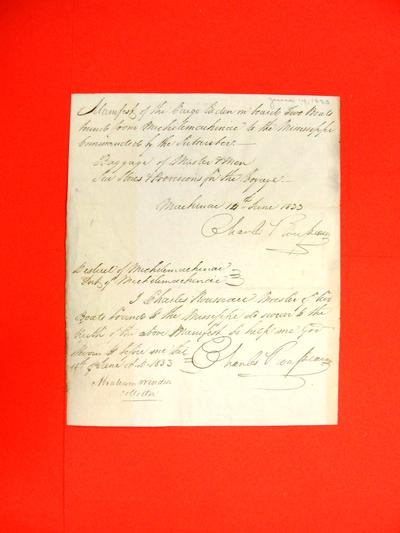 June 14, 1833
Manifest of the Cargo Laden on board Two Boats
bound from Michilimackinac to the Mississippi
Commanded by the Subscriber.
Baggage of Master & Men
Sea Stores & Provisions for the Voyage.
Mackinac 14th June 1833
Charles
District of Michilimackinac
Port of Michilimackinac
I Charles Master of two
Boats bound to the Mississippi do swear to the
truth of the above Manifest So help me God
Sworn to before me this
14th of June A.D. 1833
Charles
Abraham Wendell
Collector